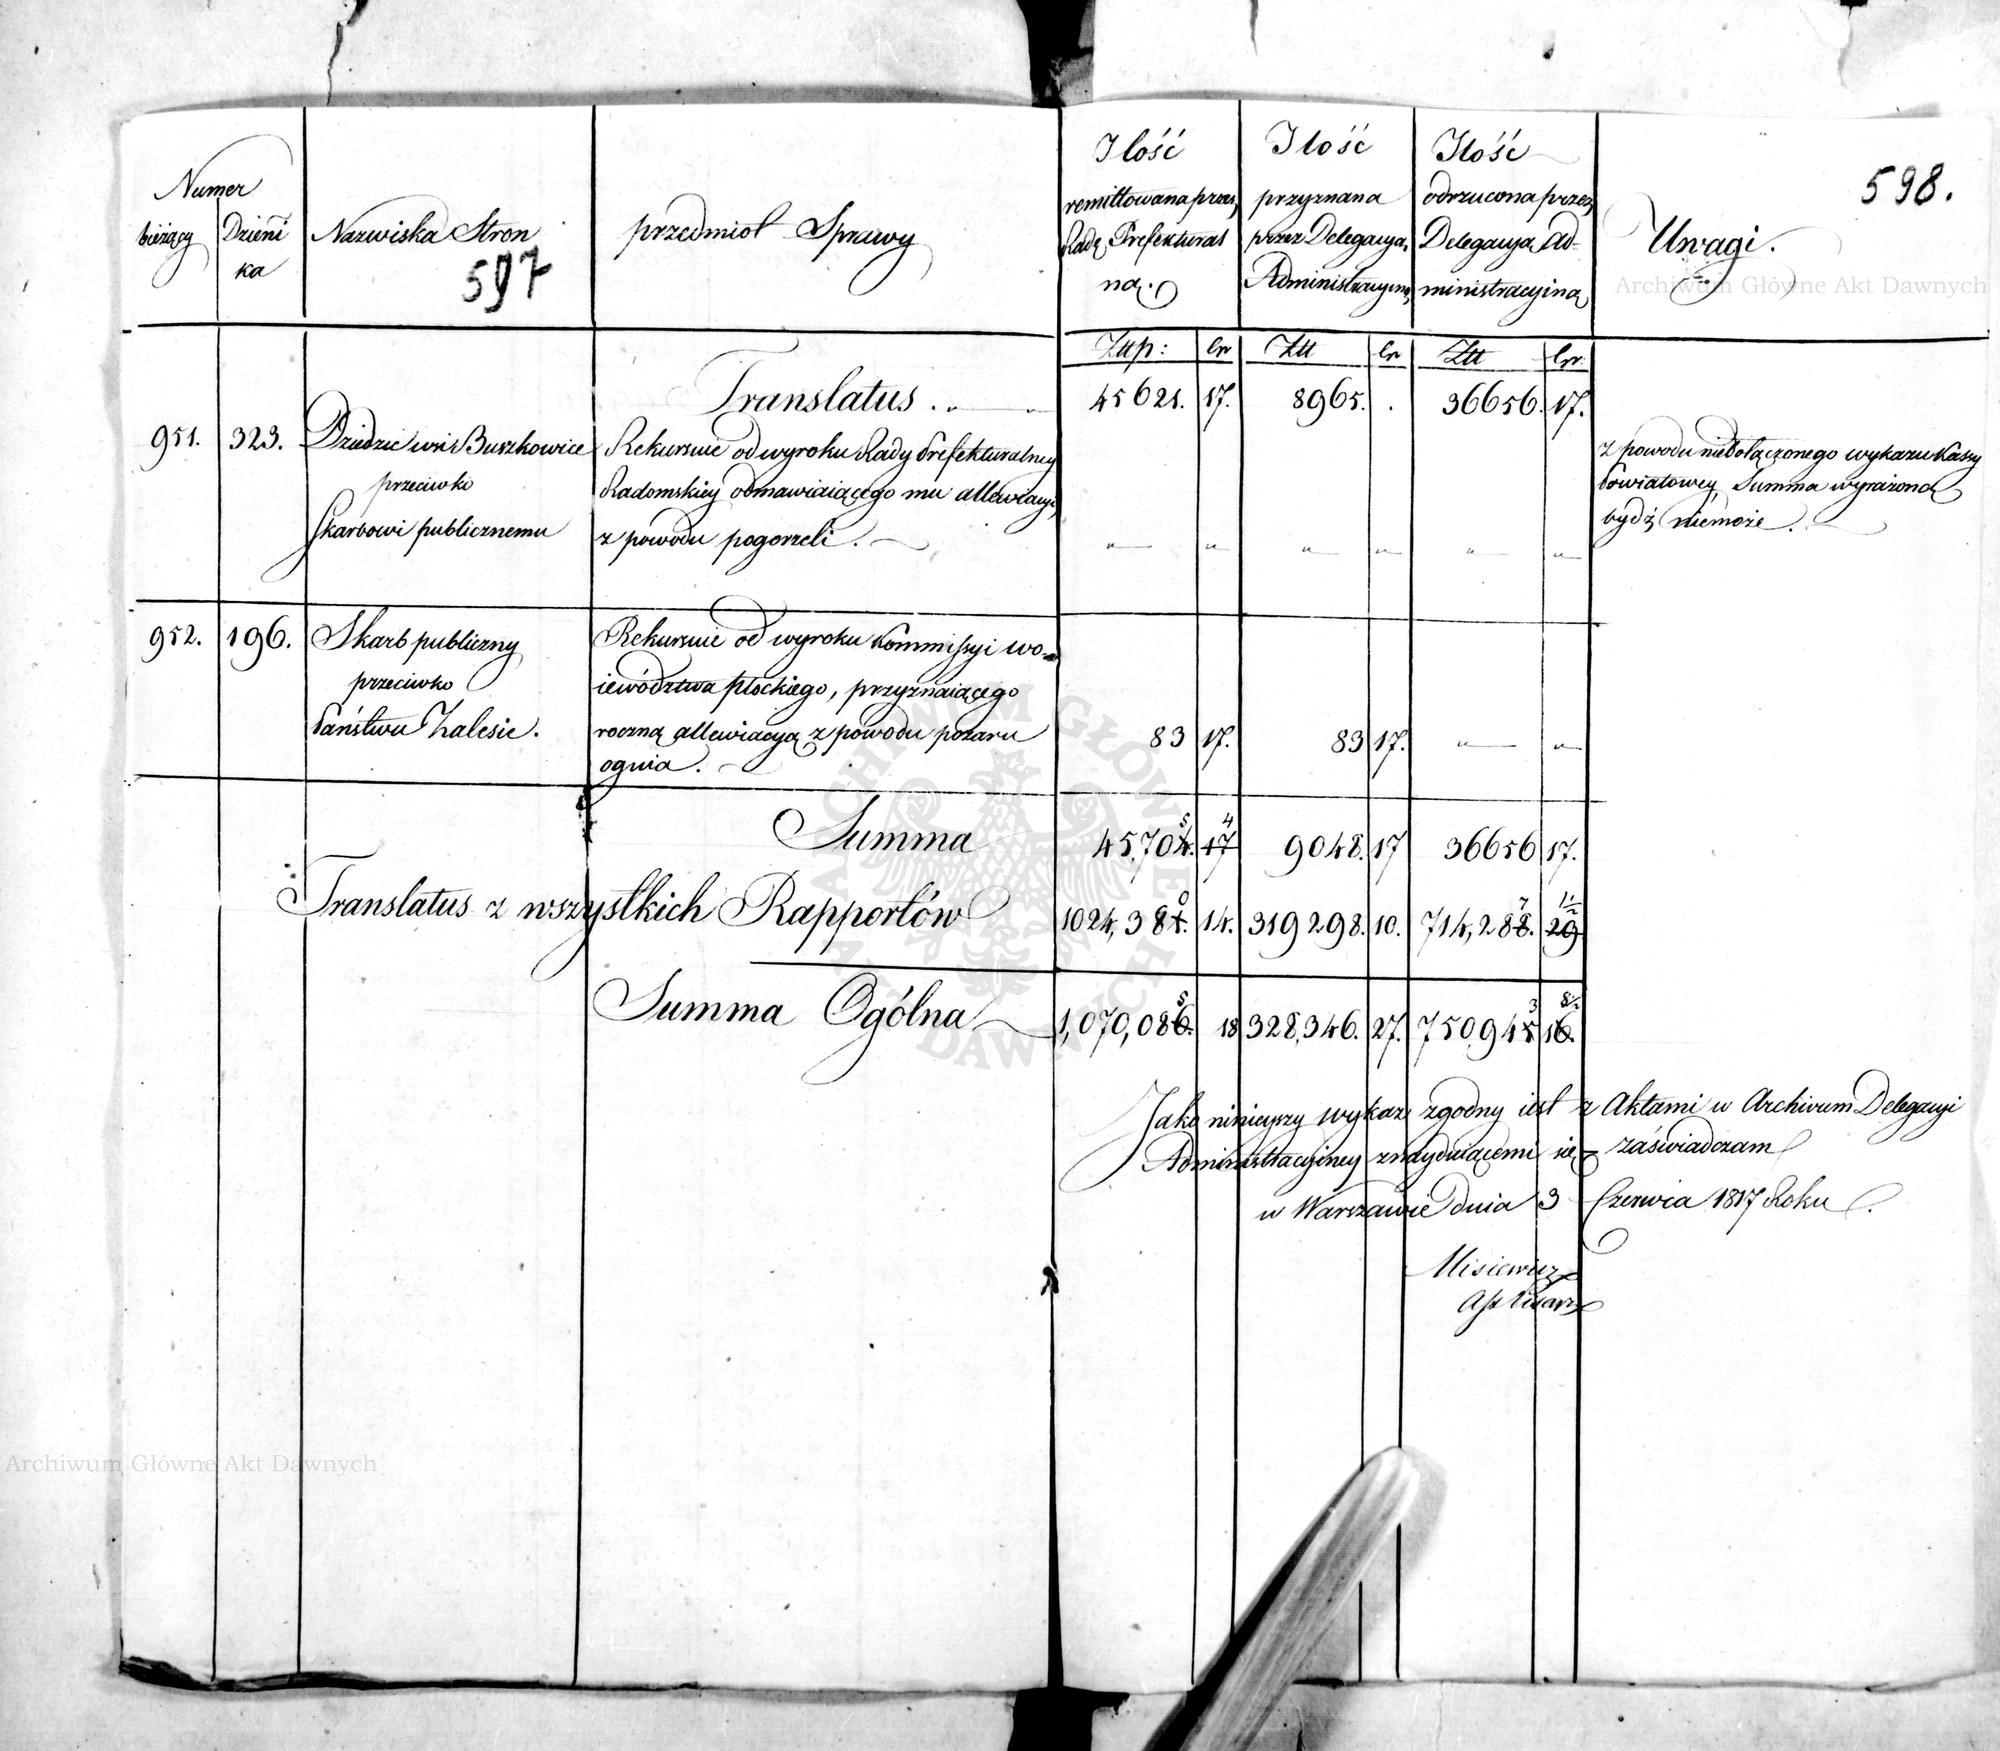 Numer
bieżący
Dzieni
ka
Nazwiska Stron
597
przedmiot Sprawy
Ilość
remittowana przez
Radę Prefektural
ną.
Ilość
przyznana
przez Delegacyą
Administracyiną
Ilość
odrzucona przez
Delegacyą Ad-
ministracyiną
Uwagi.
598.
Złłp: Gr Złł Gr Złł Gr.
Translatus . 45621. 17. 8965. . 36656. 17.
951. 323. Dziedzic wsi Buszkowice
przeciwko
Skarbowi publicznemu
Rekursuie od wyroku Rady Prefekturalney
Radomskiey odmawiaiącego mu allewiacyi,
z powodu pogorzeli. " " " " " "
z powodu niedołączonego wykazu Kassy
Powiatowey, Summa wyrażoną
bydź niemoże.
952. 196. Skarb publiczny
przeciwko
Państwu Zalesie.
Rekursuie od wyroku Kommissyi wo=
iewództwa Płockiego, przyznaiącego
roczną allewiacyą z powodu pożaru
ognia. 83 17. 83 17. " "
Summa 45,704. 5 17 4 9048. 17 36656 17.
Translatus z wszystkich Rapportów 1024,381. 0 14. 319298. 10. 714,288. 7 29
Summa Ogólna 1,070,086. 5 18 328,346. 27. 750,945 3 16.
Jako ninieyszy wykaz zgodny iest z Aktami w Archivum Delegacyi
Administracyiney znayduiącemi się zaświadczam
w Warszawie dnia 3 Czerwca 1817 Roku.
Misiewicz
Archiwum Główne Akt Dawnych
Archiwum Główne Akt Dawnych
ARCHIWUM GŁÓWNE AKT DAWNYCH